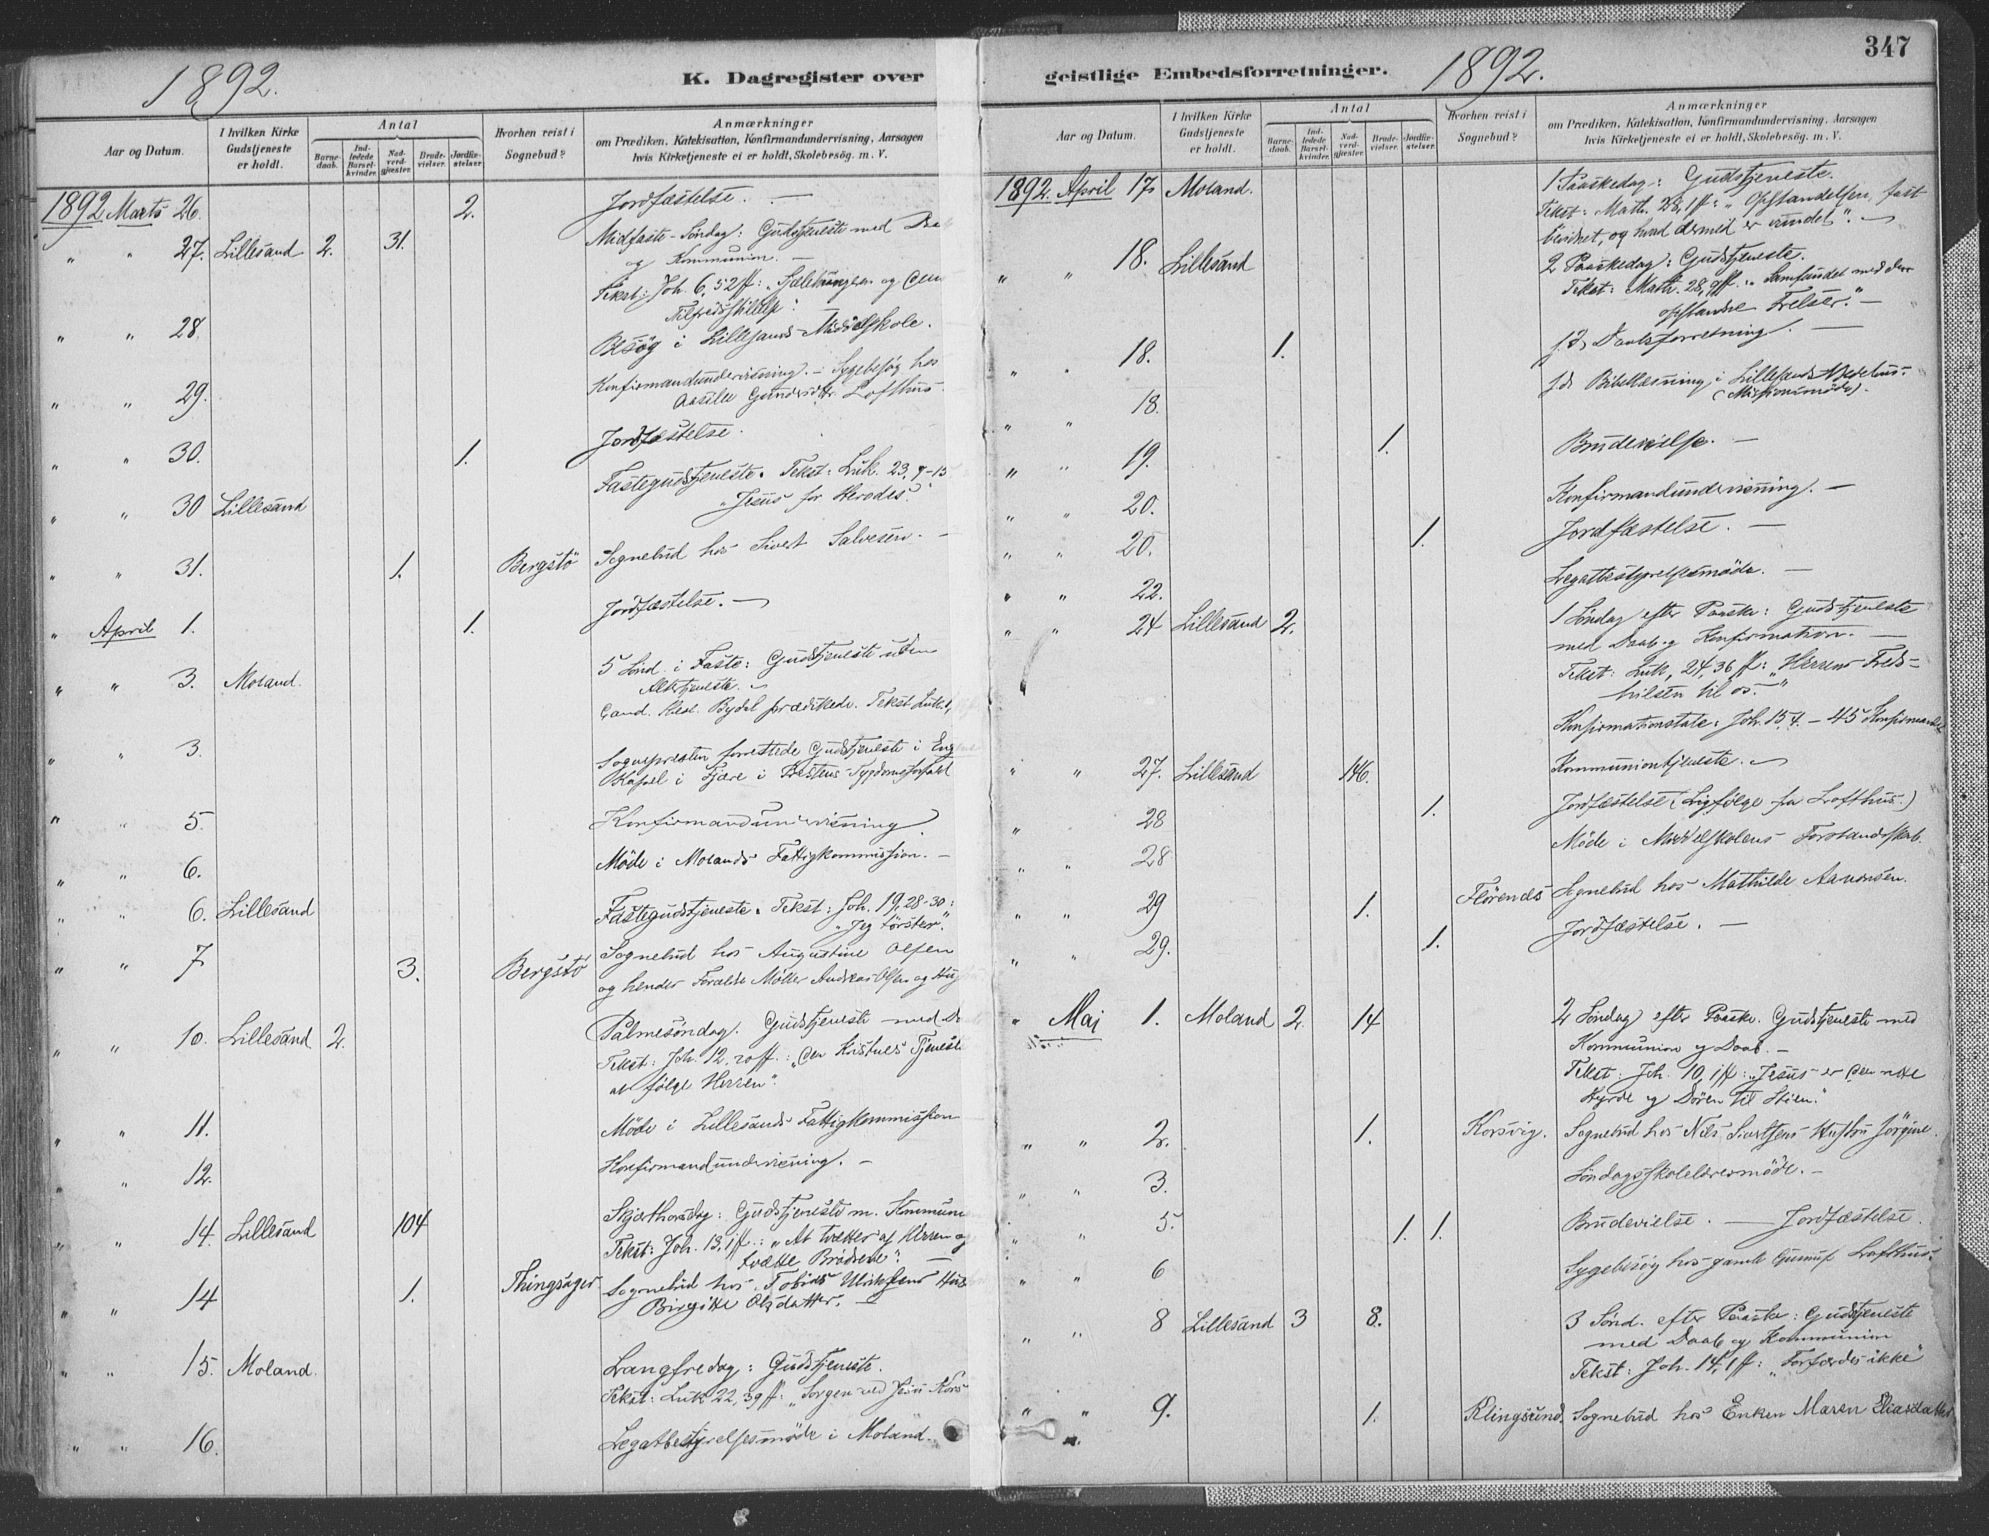 1892.
K. Dagregister over
Aar og Datum.
I hvilken Kirke Gudstjeneste er holdt.
Antal
Barnedaab.
Indledede Barselkvinder.
Nadverdgjæster.
Brudevielser.
Jordfæstelser.
Hvorhen reist i Sognebud?
Anmærkninger
om Prædiken, Katekisation, Konfirmandundervisning, Aarsagen
hvis Kirketjeneste ei er holdt, Skolebesög. m. V.
1892 Marts 26. 2. Jordfæstelse. —
" " 27. Lillesand 2. 31. Midfaste-Söndag: Gudstjeneste med
og Kommunion. —
Tekst: Joh. 6,52ff: „Sjælehungeren og den
" " 28. Besög i Lillesands Middelskole.
" " 29. Konfirmandundervisning. — Sygebesög hos
Lofthus.
" " 30. 1. Jordfæstelse.
" " 30 Lillesand Fastegudstjeneste. Tekst: Luk. 23,7-15
„Jesus for Herodes"
" " 31. 1. Bergstö Sognebud hos Sivert Salvesen. —
" April 1. 1. Jordfæstelse. —
" " 3. Moland. 5 Sönd. i Faste: Gudstjeneste uden
Altertjeneste. —
Cand. theol. Bydal prædikede. Tekst Luk. 1,
" " 3. Sognepresten forrettede Gudstjeneste i
Kapel i Fjære i Prestens Sygdomsforfald
" " 5. Konfirmandundervisning.
" " 6. Möde i Molands Fattigkommission. —
" " 6. Lillesand Fastegudstjeneste. Tekst: Joh. 19,28-30:
„Jeg törster".
" " 7 3. Bergstö Sognebud hos Augustine Olsen
og hendes Forældre Möller Andreas Olsen og
" " 10. Lillesand 2. Palmesöndag. Gudstjeneste med
Tekst: Joh. 12, 20ff.: „Den Kristnes Tjeneste
at fölge Herren".
" " 11. Möde i Lillesands Fattigkommission
" " 12. Konfirmandundervisning. —
" " 14. Lillesand 104 Skjærthorsdag: Gudstjeneste m.
Tekst: Joh. 13,1ff.: „At tvættes af Herren og
tvætte Brödrene". —
" " 14 1. Thingsager Sognebud hos Tobias Ulriksens
Birgitte Olsdatter. —
" " 15. Moland. Langfredag: Gudstjeneste.
Tekst: Luk 22,39ff: „Sorgen ved Jesu Kors
" " 16. Legatbestyrelsesmöde i Moland.
geistlige Embedsforretninger.
1892.
347
Aar og Datum.
I hvilken Kirke Gudstjeneste er holdt.
Antal
Barnedaab.
Indledede Barselkvinder.
Nadverdgjæster.
Brudevielser.
Jordfæstelser.
Hvorhen reist i Sognebud?
Anmærkninger
om Prædiken, Katekisation, Konfirmandundervisning, Aarsagen
hvis Kirketjeneste ei er holdt, Skolebesög. m. V.
1892. April 17. Moland. 1 Paaskedag: Gudstjeneste.
Tekst: Math. 28,1ff: „Opstandelsen, fast
bevidnet, og hvad dermed er vundet". —
" " 18. Lillesand 2 Paaskedag: Gudstjeneste.
Tekst: Math. 28,9ff.: „Samfundet med den
opstandne Frelser." —
" " 18. 1. s. D. Daabsforretning. —
" " 18. s. d. Bibellæsning i Lillesands Bedehus.
(Missionsmöde).
" " 19. 1. Brudevielse. —
" " 20. Konfirmandundervisning. —
" " 20. 1. Jordfæstelse. —
" " 22. Legatbestyrelsesmöde. —
" " 24 Lillesand 2. 1 Söndag efter Paaske: Gudstjeneste
med Daab og Konfirmation. —
Tekst: Luk, 24,36 ff: „Herrens Freds-
hilsen til os."
Konfirmationstale: Joh. 15,4. — 45 Konfirmander
" " 27. Lillesand 146. Kommuniontjeneste. —
" " 28 1. Jordfæstelse (Ligfölge fra Lofthus.)
" " 28 Möde i Middelskolens Forstandsskab.
" " 29 1. Sognebud hos Mathilde Aanonsen.
" " 29. 1. Jordfæstelse. —
" Mai 1. Moland 2. 14 2 Söndag efter Paaske. Gudstjeneste med
Kommunion og Daab. —
Tekst: Joh. 10,1ff: „Jesus er den rette
Hyrde og Dören til Stien."
" " 2. 1. Korsvig. Sognebud hos Nils Sivertsens Hustru Jörgine.
" " 3. Söndagsskolelærermöde. —
" " 5. 1. 1. Brudevielse. — Jordfæstelse.
" " 6 Sygebesög hos gamle Gunnuf Lofthus.
" " 8 Lillesand 3 8. 3 Sönd. efter Paaske: Gudstjeneste
med Daab og Kommunion
Tekst: Joh. 14,1ff: „Forfærdes ikke"
" " 9. 1. Klingsund. Sognebud hos Enken Maren Eliasdatter